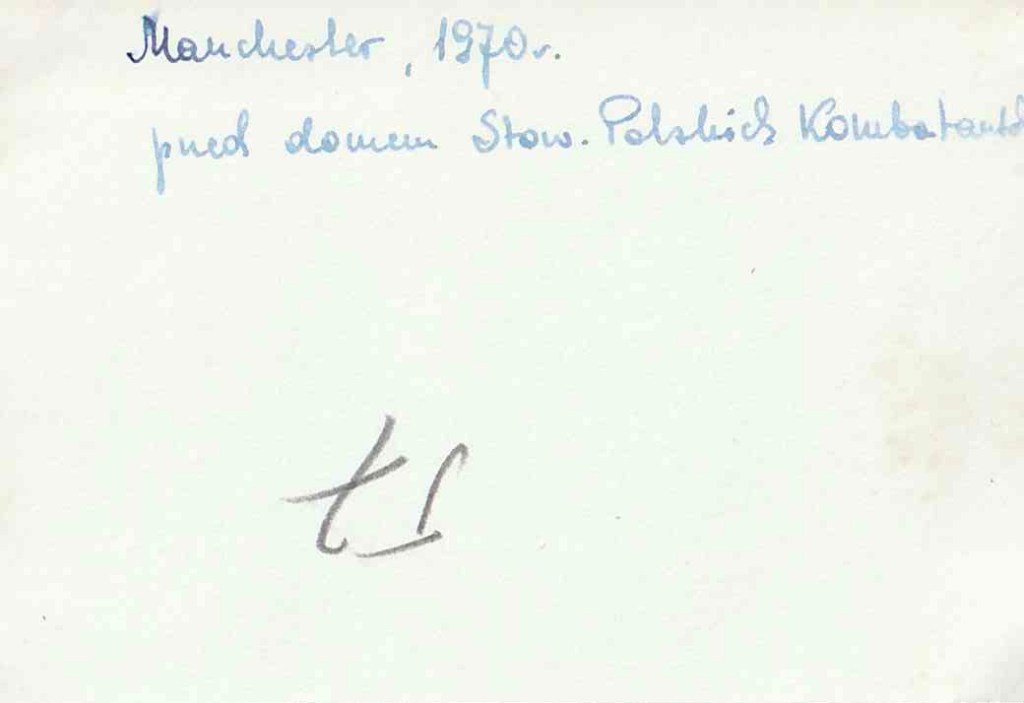 Manchester, 1970r.
przed domem Stow. Polskich Kombatantó